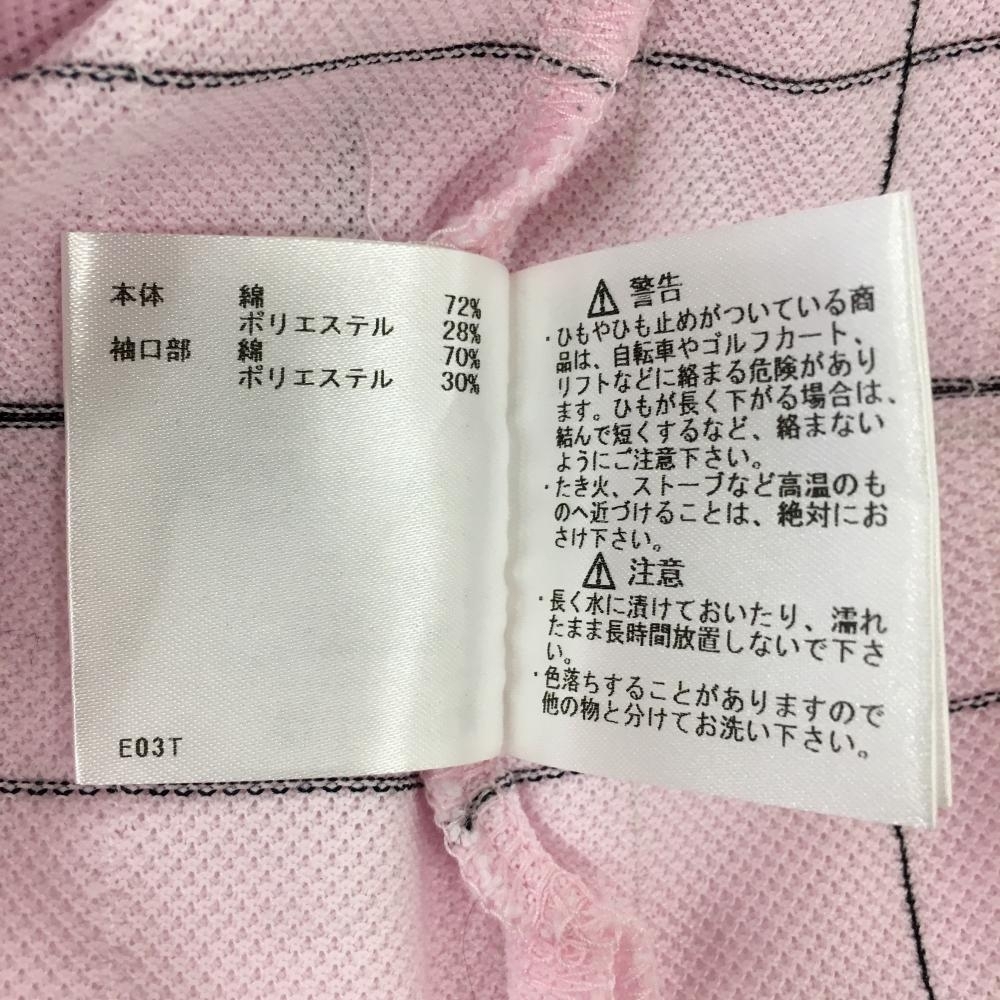 本体 綿 72%
ポリエステル 28%
袖口部 綿 70%
ポリエステル 30%
E03T
警告
・ひもやひも止めがついている商
品は、自転車やゴルフカート、
リフトなどに絡まる危険があり
ます。ひもが長く下がる場合は、
結んで短くするなど、絡まない
ようにご注意下さい。
・たき火、ストーブなど高温のも
のへ近づけることは、絶対にお
さけ下さい。
注意
・長く水に漬けておいたり、濡れ
たまま長時間放置しないで下さ
い。
・色落ちすることがありますので
他の物と分けてお洗い下さい。